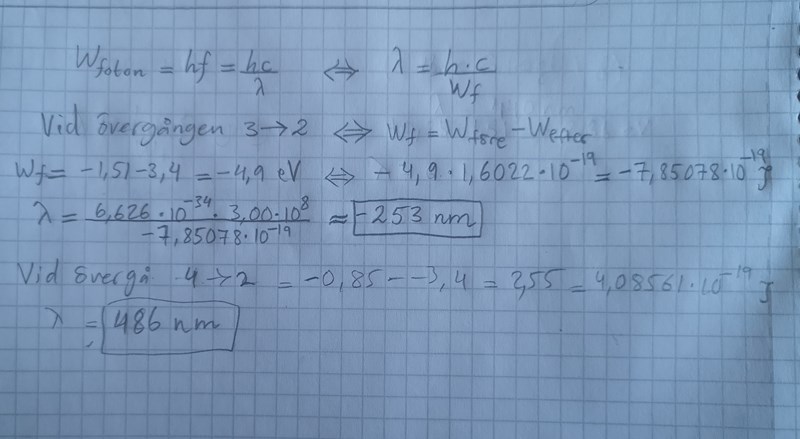 W_foton = hf = hc/λ ⇔ λ = h·c/W_f
Vid övergången 3→2 ⇔ W_f = W_före - W_efter
W_f = -1,51-3,4 = -4,9 eV ⇔ -4,9·1,6022·10^-19 = -7,85078·10^-19 J
λ = 6,626·10^-34·3,00·10^8/-7,85078·10^-19 ≈ -253 nm
Vid övergå 4→2 = -0,85--3,4 = 2,55 = 4,08561·10^-19 J
λ = 486 nm